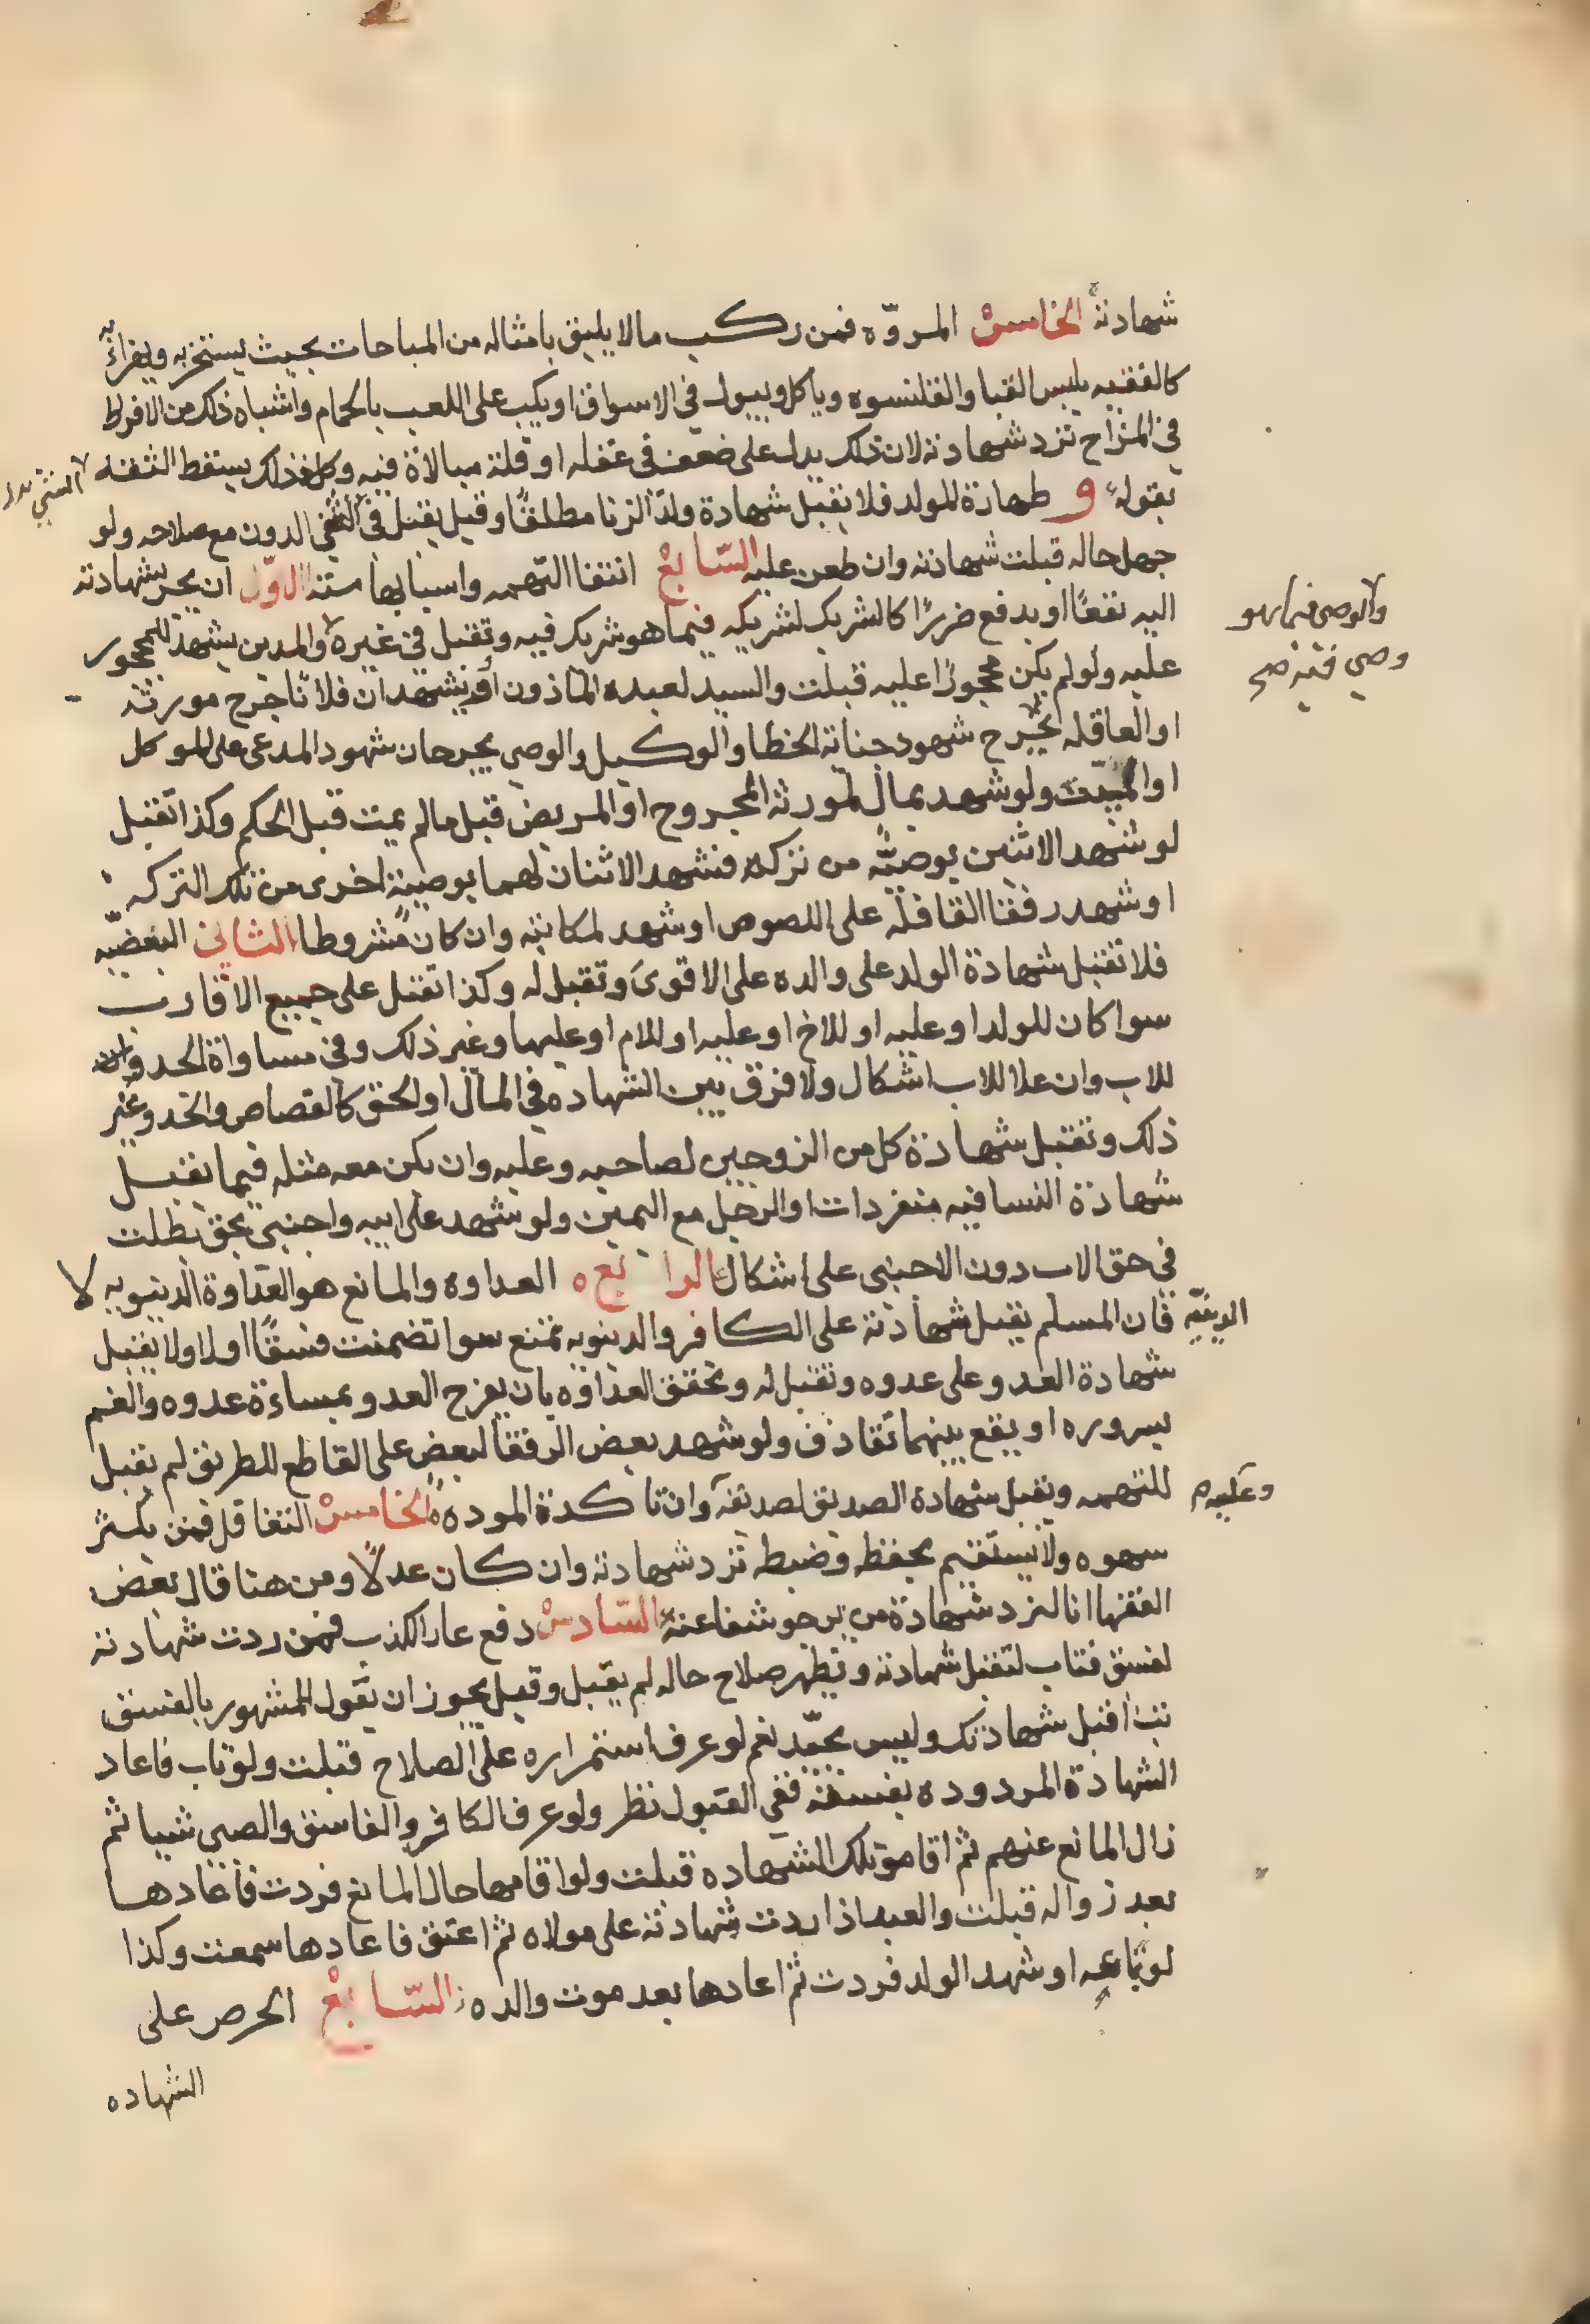 شهادته الخامس المروّه فمن ركب مالا يليق بامثاله من المباحات بحيث يستخر به ويهزأ به
كالفقيه يلبس القبا والقلنسوه وياكل ويبول في الاسواق او يكب على اللعب بالحمام واشباه ذلك من الافراط
في المزاح ترد شهادته لان ذلك يدل على ضعف في عقله او قلة مبالاة فيه وكل ذلك يسقط الثقه
بقوله و طهارة المولد فلا يقبل شهادة ولد الزنا مطلقًا وقيل يقبل في الشي الدون مع صلاحه ولو
الشي
جهل حاله قبلت شهادته وان طعن عليه السّابع انتفا التهمه واسبابها سته الاوّل ان يجر بشهادته
اليه نفعًا او يدفع ضررًا كالشريك لشريكه فيما هو شريك فيه وتقبل في غيره والمدين يشهد للمحجور
والوصي فيما هو
وصي فيه صح
عليه ولو لم يكن محجورًا عليه قبلت والسيد لعبده الماذون او يشهد ان فلانًا جرح مورثه
او العاقله بجرح شهود جناية الخطا والوكيل والوصي يجرحان شهود المدعى على الموكل
او الميّت ولو شهد بمال لمورثه المجروح او المريض قبل مالم يمت قبل الحكم وكذا تقبل
لو شهد الاثنين بوصيّه من تركه فشهد الاثنان لهما بوصية اخرى من تلك التركه
او شهد رفقا القافله على اللصوص او شهد لمكاتبه وان كان مشروطا الثاني البعضيّه
فلا تقبل شهادة الولد على والده على الاقوى وتقبل له وكذا تقبل على جميع الاقارب
سوا كان للولد او عليه او للاخ او عليه او للام او عليها وغير ذلك وفي مساواة الجد وان علا
للاب وان علا للاب اشكال ولا فرق بين الشهاده في المال او الحق كالقصاص والحد وغير
ذلك وتقبل شهادة كل من الزوجين لصاحبه وعليه وان يكن معه مثله فيما يقبل
شهادة النسا فيه منفردات او الرجل مع اليمين ولو شهد على ابيه واجنبي بحق بطلت
في حق الاب دون الاجنبى على اشكال الرابع العداوه والمانع هو العداوة الدنيويه لا
الدينيّه فان المسلم يقبل شهادته على الكافر والدنيويه تمنع سوا تضمنت فسقًا او لا ولا يقبل
شهادة العدو على عدوه وتقبل له وتحقق العداوه بان يفرح العدو بمساءة عدوه والغم
بسروره او يقع بينهما تقاذف ولو شهد بعض الرفقا لبعض على القاطع للطريق لم يقبل
للتهمه وتقبل شهادة الصديق لصديقه وان تاكدة الموده الخامس التغافل فمن يكثر
وعليه م
سهوه ولا يستقيم بحفظه وضبطه ترد شهادته وان كان عدلًا ومن هنا قال بعض
الفقها انا لنرد شهادة من نرجو شفاعته السّادس دفع عار الكذب فمن ردت شهادته
لفسق فتاب لتقبل شهادته ويظهر صلاح حاله لم يقبل وقيل يجوز ان يقول للمشهور بالفسق
تب اقبل شهادتك وليس بجيّد نعم لو عرف استمراره على الصلاح قبلت ولو تاب فاعاد
الشهادة المردوده بفسقه ففي القبول نظر ولو عرف الكافر والفاسق والصبى شيا ثم
زال المانع عنهم ثم اقاموا تلك الشهاده قبلت ولو اقامها حال المانع فردت فاعادها
بعد زواله قبلت والعبد اذا ردت شهادته على مولاه ثم اعتق فاعادها سمعت وكذا
لو باعه او شهد الولد فردت ثم اعادها بعد موت والده السّابع الحرص على
الشهاده